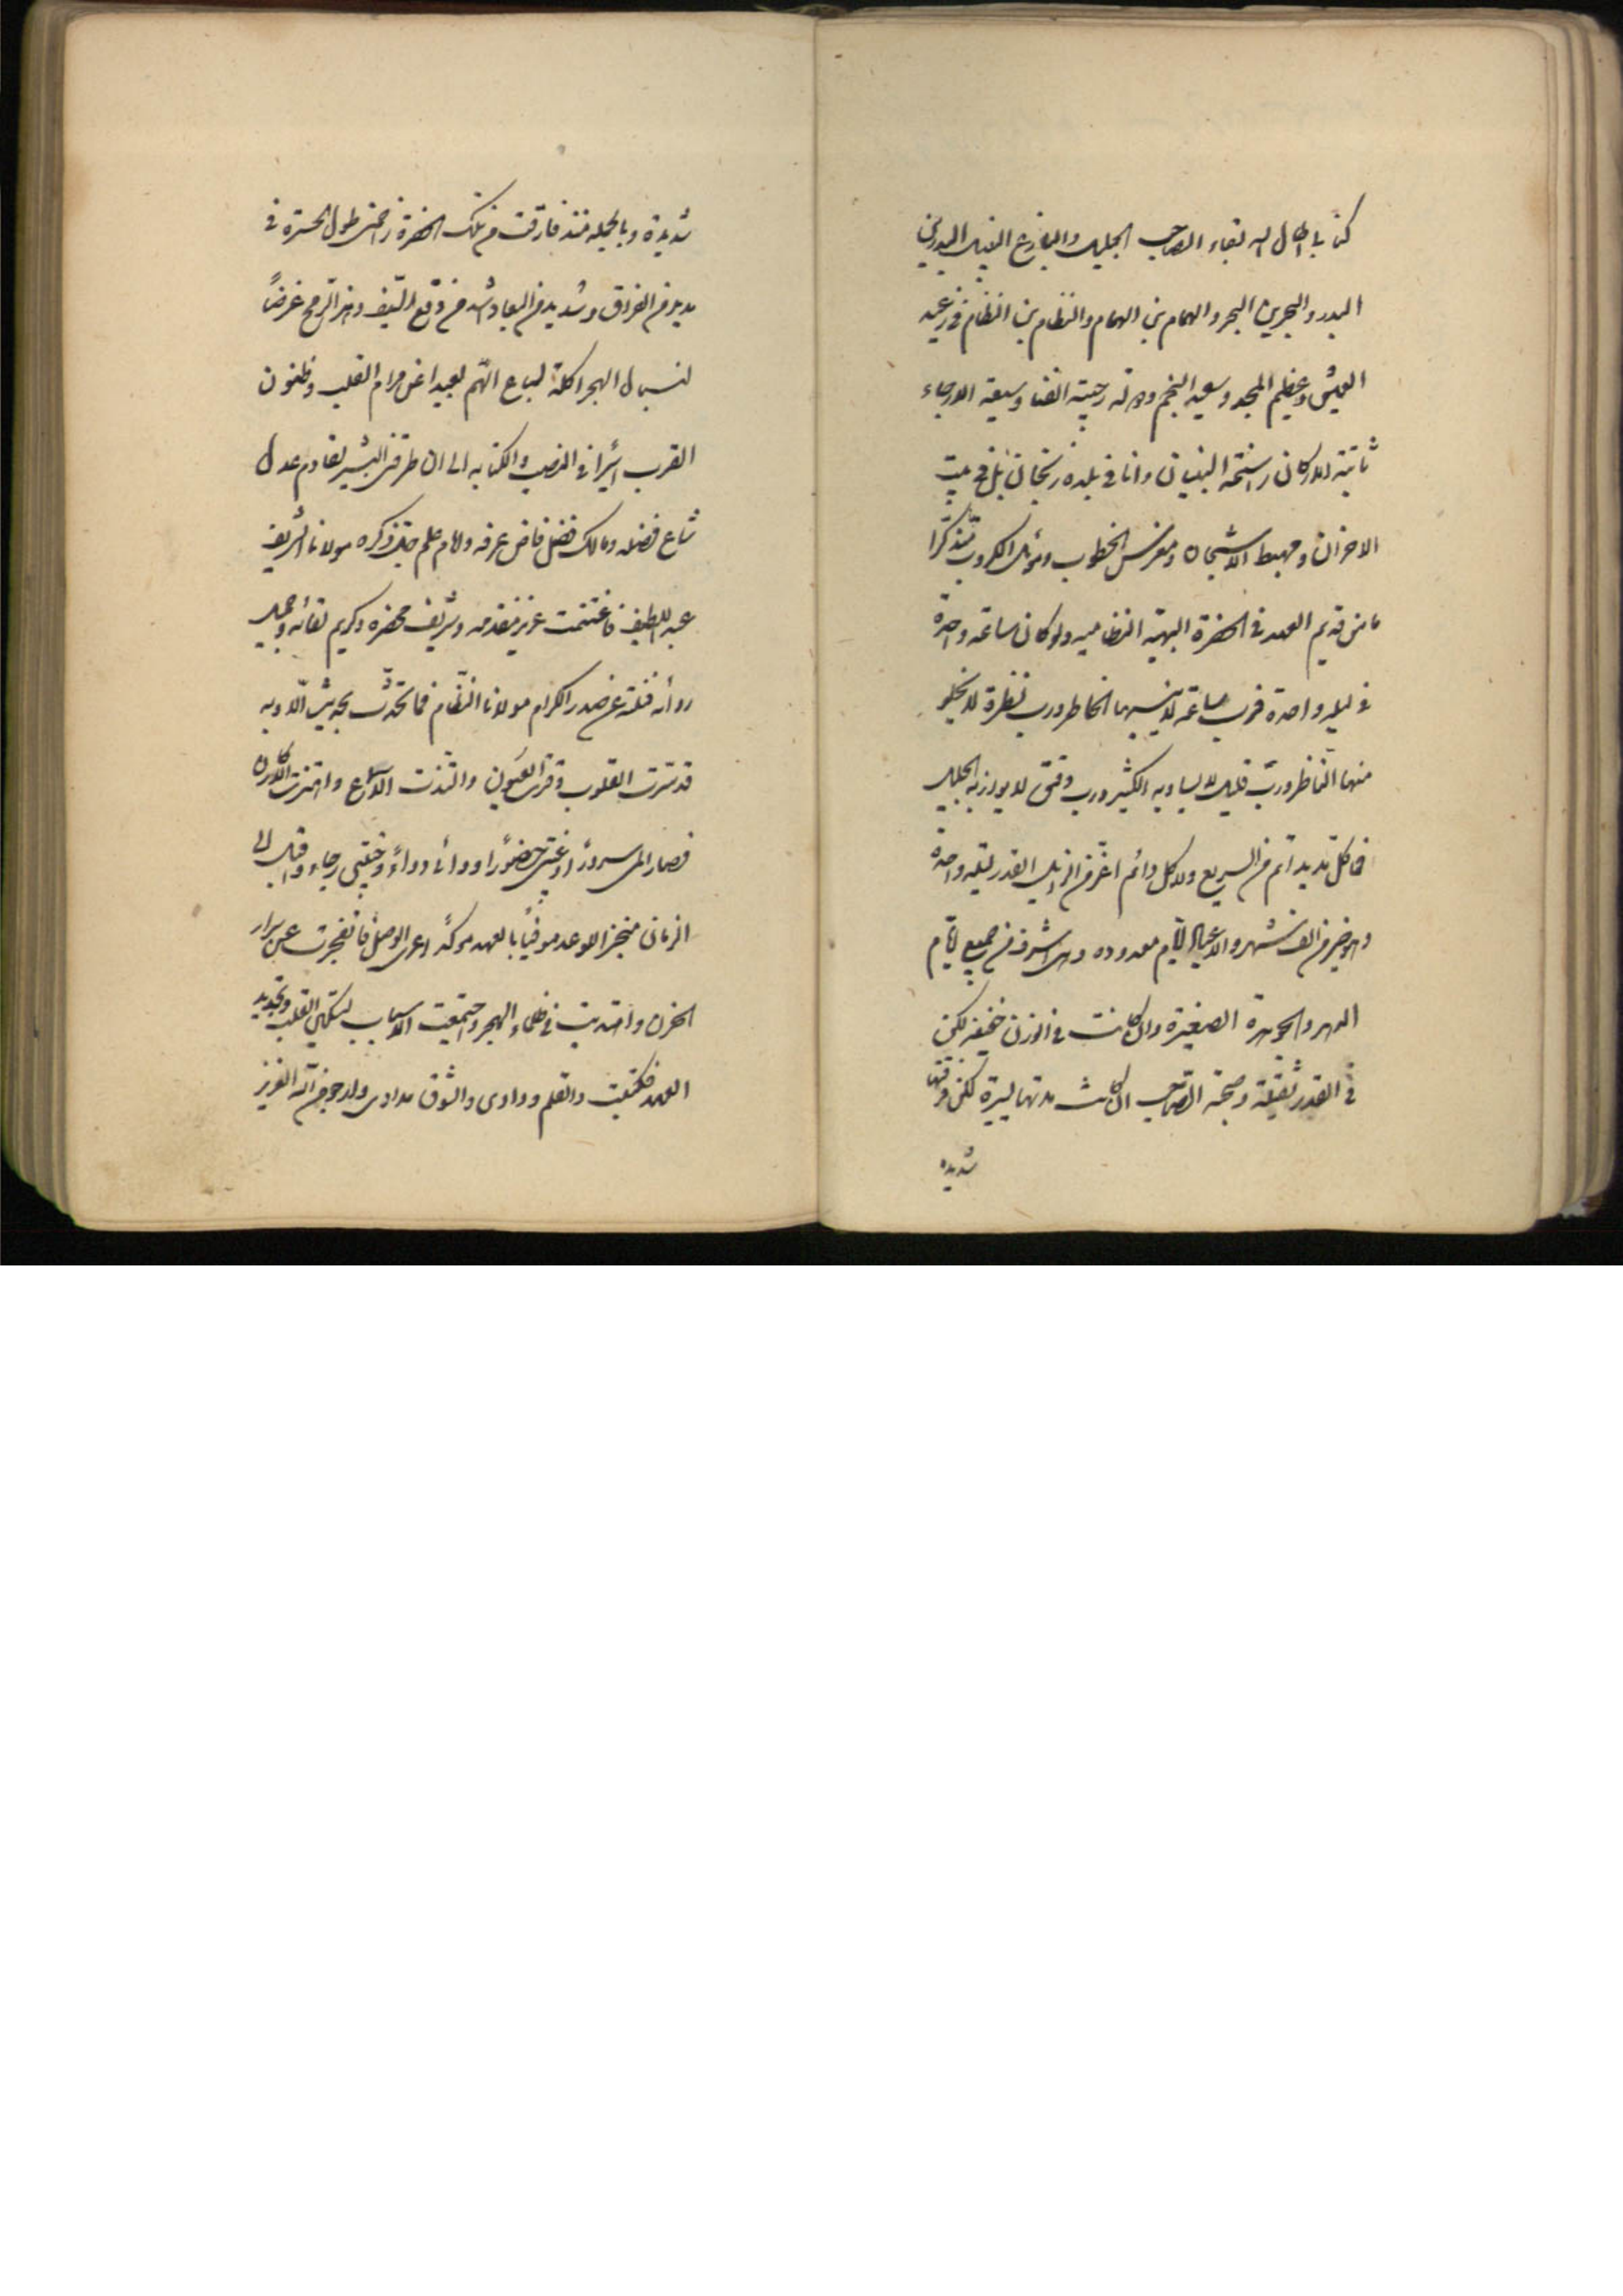 كتابا اطال الله بقاء الصاحب الجليل والبارع النبيل البدر بن
البدر والبحر بن البحر والهمام بن الهمام والنظام بن النظام فى رغيد
العيش وعظيم المجد وسعيد النجم ودولة رحيبة الفناء وسيعة الارجاء
ثابتة الاركان راسخة البنيان وانا فى بلدة زنجان بل فى بيت
الاحزان ومهبط الاشجان ومغرس الخطوب وموئل الكروب متذكرا
مامن قديم العهد فى الحضرة البهية النظاميه ولو كان ساعة واحدة
فى ليلة واحدة فرب ساعة لا ينسيها الخاطر ورب نظرة لا يخلو
منها الناظر ورب قليل لا يساويه الكثير ورب وقتى لا يوازيه الجليل
فما كل مديد اتم من السريع ولا كل دائم اعز من الزايل القدر ليلة واحدة
وهو خير من الف شهر والاعياد ايام معدوده وهى اشرف من جميع ايام
الدهر والجوهرة الصغيرة وان كانت فى الوزن خفيفه لكن
فى القدر ثقيلة وصحبة الصاحب ان كانت مدتها يسيرة لكن فرقتها
شديده
شديدة وبالجمله منذ فارقت من تلك الحضرة زاحمنى طول الحسرة فى
مديد من الفراق وشديد من البعاد اشد من وقع السيف وخز الرمح غرضا
لنبال الهجر اكلة لسباع الهم بعيدا عن مرام القلب وظنون
القرب الى ان طرقنى البشير بقادم عدل
شاع فضله ومالك فضل فاض عرفه وامام علم جل ذكره مولانا الشريف
عبد اللطيف فاغتنمت عزيز مقدمه وشريف محضره وكريم لقائه وجميل
روائه فنلته عن صدر الكرام مولانا النظام فما تحدث بحديث الا وبه
قد سرت القلوب وقرت العيون والتذت الاسماع واهتزت الاركان
فصار المى سرورا وغيبتى حضورا ودائى دواء وخيبتى رجاء واقبل الى
الزمان منجزا للوعد موفيا بالعهد موكدا عرى الوصل فانفجرت عن سرار
الحزن واهتديت فى ظلماء الهجر واجتمعت الاسباب لتسكين القلب وتجديد
العهد فكتبت والقلم ودادى والشوق مدادى وارجو من الله العزيز